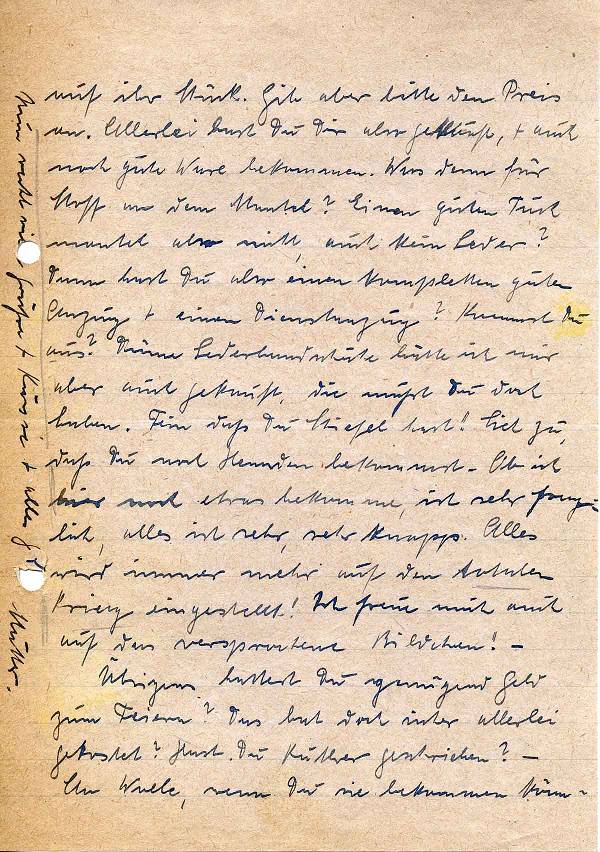 auf ihr Stück. Gib aber bitte den Preis
an. Allerlei hast Du Dir also gekauft, + auch
noch gute Ware bekommen. Was denn für
Stoff an dem Mantel? Einen guten Tuch
mantel also nicht, auch kein Leder?
Dann hast Du also einen kompletten guten
Anzug + einen Dienstanzug? Kommst Du
aus? Dünne Lederhandschuhe hätte ich mir
aber auch gekauft, die mußt Du doch
haben. Fein daß Du Stiefel hast! Sieh zu,
daß Du noch Hemden bekommst. Ob ich
hier noch etwas bekomme, ist sehr frag-
lich, alles ist sehr, sehr knapp. Alles
wird immer mehr auf den totalen
Krieg eingestellt! Ich freue mich auch
auf das versprochene Bildchen! –
Übrigens hattest Du genügend Geld
zum Feiern? Das hat doch sicher allerlei
gekostet? Hast Du geschrieben? –
Um Wolle, wenn Du sie bekommen könn-
Nun recht viele Grüße + Küsse + alles
Mutter.